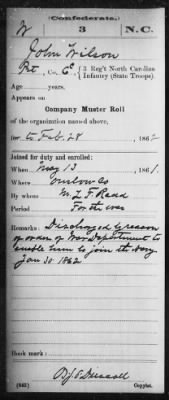 (Confederate.)
W 3 N.C.
John Wilson
Pvt, Co. C, 3 Reg't North Carolina
Infantry (State Troops).
Age years.
Appears on
Company Muster Roll
of the organization named above,
for to Feb. 28, 1862
Joined for duty and enrolled:
When May 13, 1861.
Where Onslow Co
By whom M. L. F. Redd
Period For the war
Remarks: Discharged by reason
of order of War Department to
enable him to join the Navy
Jan 30 1862
Book mark:
(642) Copyist.